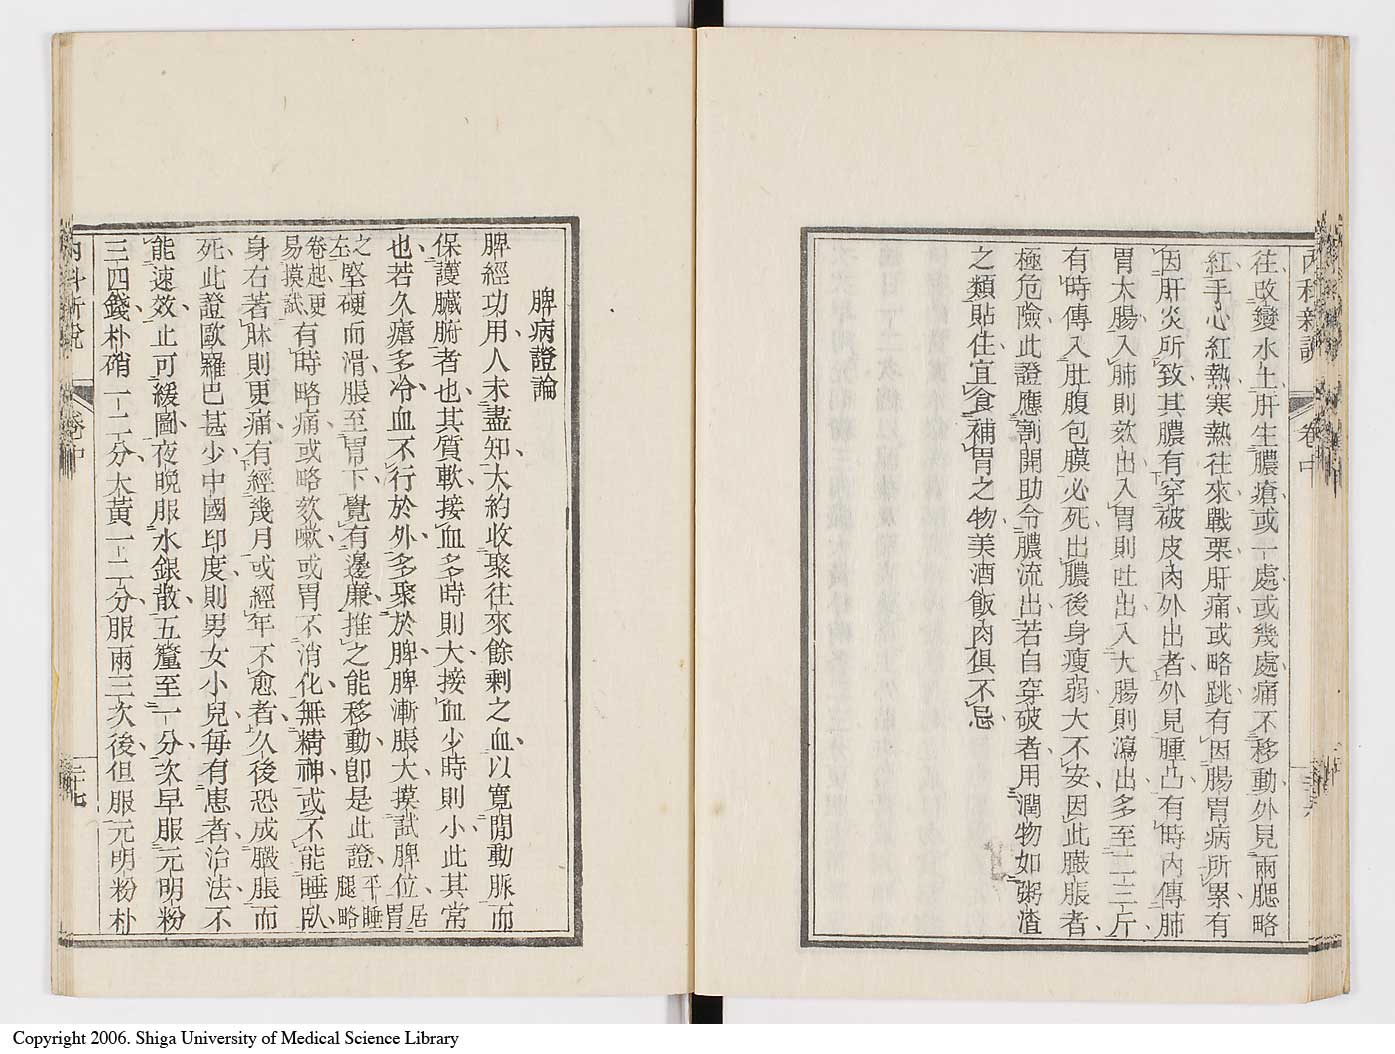 內科新說
卷中
三十六
往改變水土肝生膿瘡或一處或幾處痛不移動外見兩腮略
紅手心紅熱寒熱往來戰栗肝痛或略跳有因腸胃病所累有
因肝炎所致其膿有穿破皮肉外出者外見腫凸有時內傳肺
胃大腸入肺則欬出入胃則吐出入大腸則瀉出多至二三斤
有時傳入肚腹包膜必死出膿後身瘦弱大不安因此臌脹者
極危險此證應割開助令膿流出若自穿破者用潤物如粥渣
之類貼住宜食補胃之物美酒飯肉俱不忌
脾病證論
脾經功用人未盡知大約收聚往來餘剩之血以寬閒動脈而
保護臟腑者也其質軟接血多時則大接血少時則小此其常
也若久瘧多冷血不行於外多聚於脾脾漸脹大摸試脾位居胃
之左堅硬而滑脹至胃下覺有邊廉推之能移動卽是此證平睡腿略
卷起更易摸試有時略痛或略欬嗽或胃不消化無精神或不能睡臥
身右著牀則更痛有經幾月或經年不愈者久後恐成臌脹而
死此證歐羅巴甚少中國印度則男女小兒每有患者治法不
能速效止可緩圖夜晚服水銀散五釐至一分次早服元明粉
三四錢朴硝一二分大黃一二分服兩三次後但服元明粉朴
內科新說
卷中
三十七
Copyright 2006. Shiga University of Medical Science Library